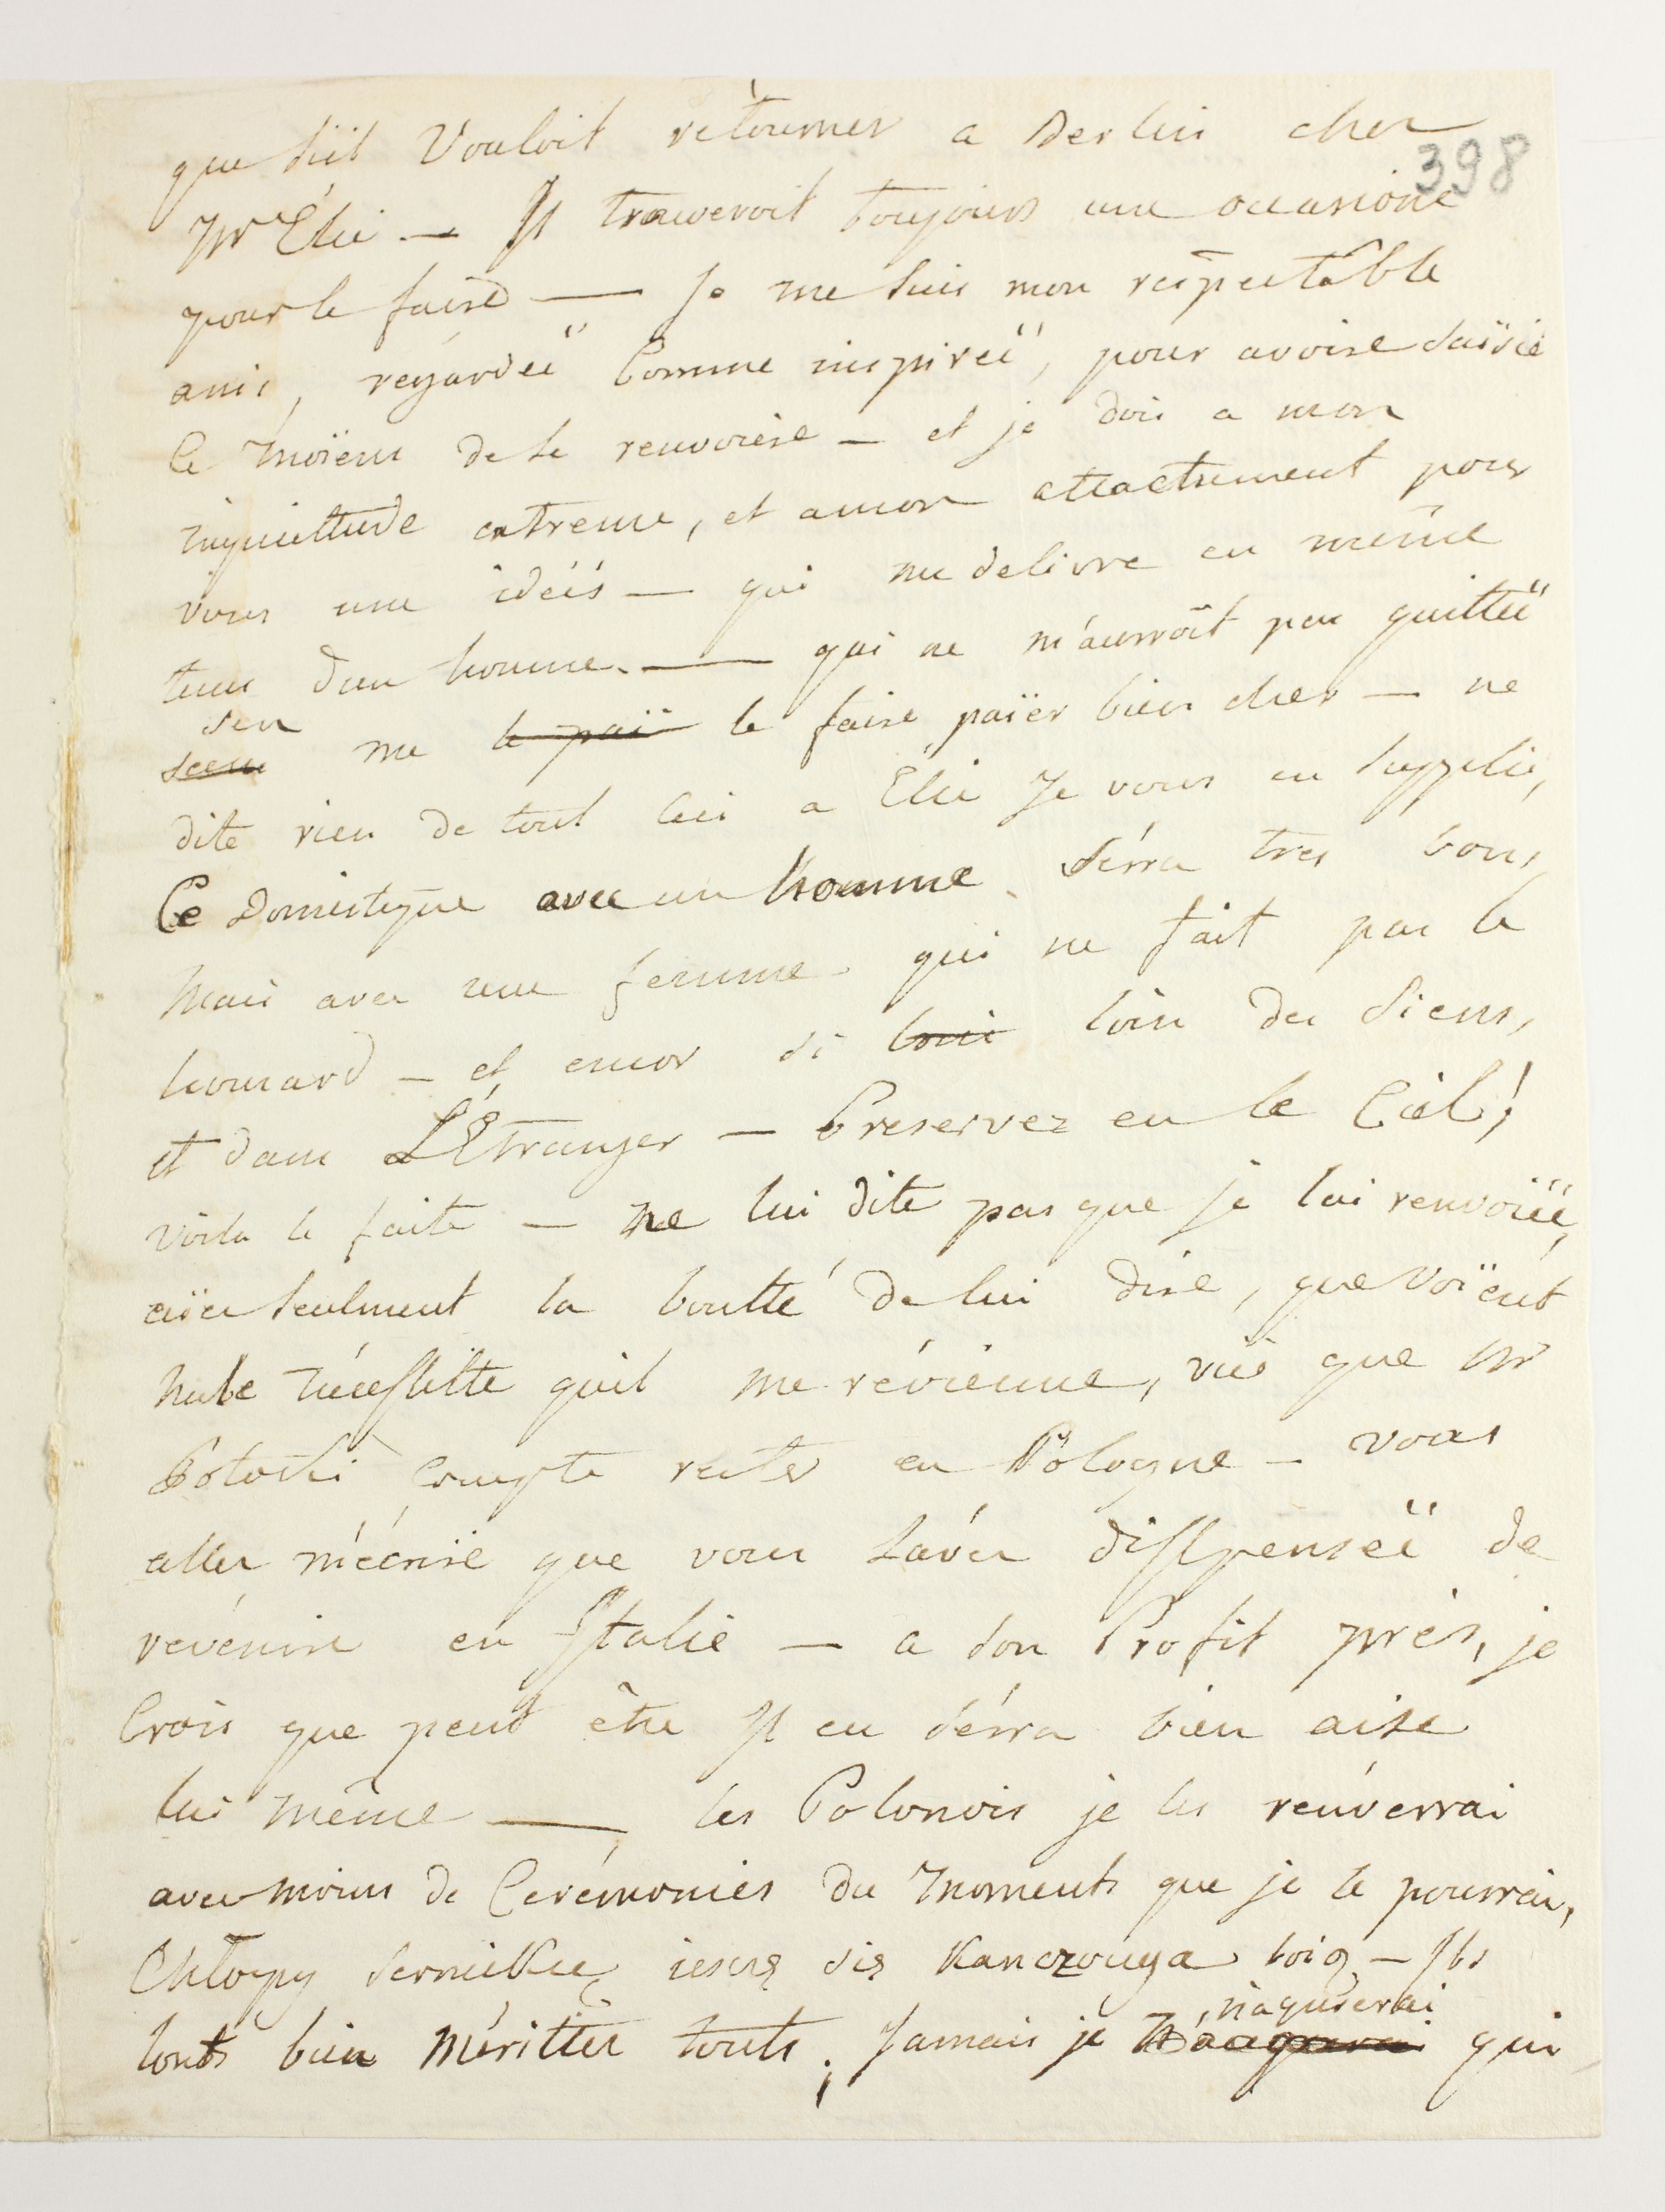 que s'il vouloit rétourner a Berlin chez
398
Mr Élie — Il trouveroit toujours une occasione
pour le faire — Je me suis mon respectable
ami, regardeë comme inspireë, pour avoire saisië
ce moïens de le renvoiere — et je dois a mon
inquiettude extreme, et a mon attachement pour
vous une idéés — qui me delivre en même
tems d'un homme. — qui ne m'aurroit pas quitteë
sen
seeu me le paï le faire païer bien cher — ne
dite rien de tout ceci a Élie Je vous en supplie,
Ce domestique avec un homme sérra tres bons,
Mais avec une femme qui ne fait pas le
housard — et encor si loin loin des siens,
et dans L'Étranger — Preservez en le Ciel!
voila le faite — ne lui dite pas que je lui renvoiëë,
aïez seulment la boutté de lui dire, que voïent
nule nécessitte qu'il me révienne, vüe que Mr
Potocki compte rester en Pologne — vous
allez m'écrire que vous l'avéz disspenseë de
revénire en Italie — a son Profit près, je
crois que peut être Il en sérra bien aise
lui même — les Polonois je les renverrai
avec moins de Cerémonies du moments que je le pourrai,
Chłopy jescze się Kanczouga boią — Ils
tous bien méritter touts, Jamais je
n'aquiserai
qui